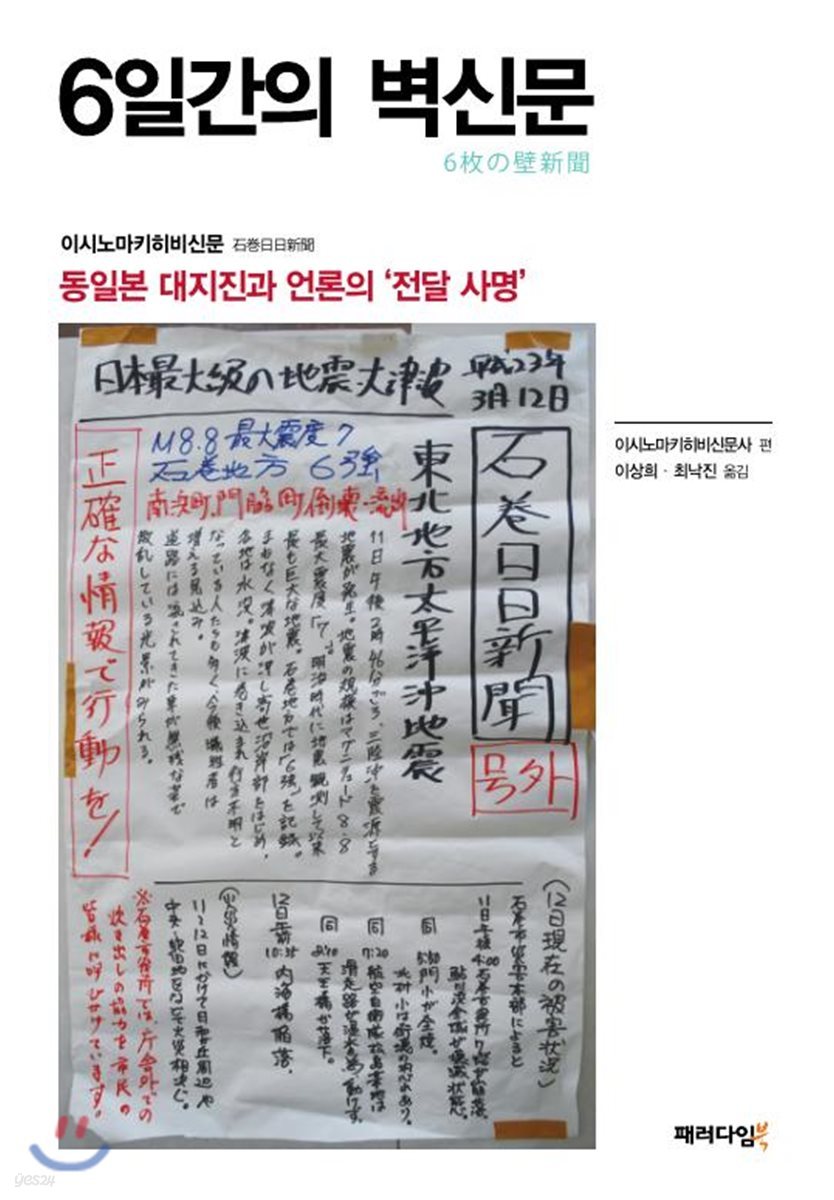 6일간의 벽신문
6枚の壁新聞
이시노마키히비신문 石巻日日新聞
동일본 대지진과 언론의 ‘전달 사명’
이시노마키히비신문사 편
이상희 · 최낙진 옮김
日本最大級の地震・大津波
平成23年
3月12日
石巻日日新聞
号外
東北地方太平洋沖地震
M8.8 最大震度7
石巻地方 6強
南浜町、門脇町、倒壊・流出
11日午後2時46分ごろ、三陸沖を震源とする
地震が発生。地震の規模はマグニチュード8.8
最大震度「7」。明治時代に地震観測して以来
最も巨大な地震。石巻地方では「6強」を記録。
まもなく津波が押し寄せ沿岸部をはじめ、
各地は水没。津波に巻き込まれ行方不明と
なっている人たちも多く、今後犠牲者は
増える見込み。
道路には流されてきた車が無残な姿で
散乱している光景がみられる。
正確な情報で行動を!
(12日現在の被害状況)
石巻市災害本部によると
11日午後4:00 石巻市役所
同 5:30 門小が全焼。
同 7:20 航空自衛隊松島基地は
滑走路が浸水
同
天王橋が落下。
12日午前
10:35 内海橋陥落。
(火災情報)
11〜12日にかけて日和が丘周辺や
※石巻市役所では、庁舎外での
炊き出しの協力を市民の
皆様に呼びかけています。
패러다임북
yes24